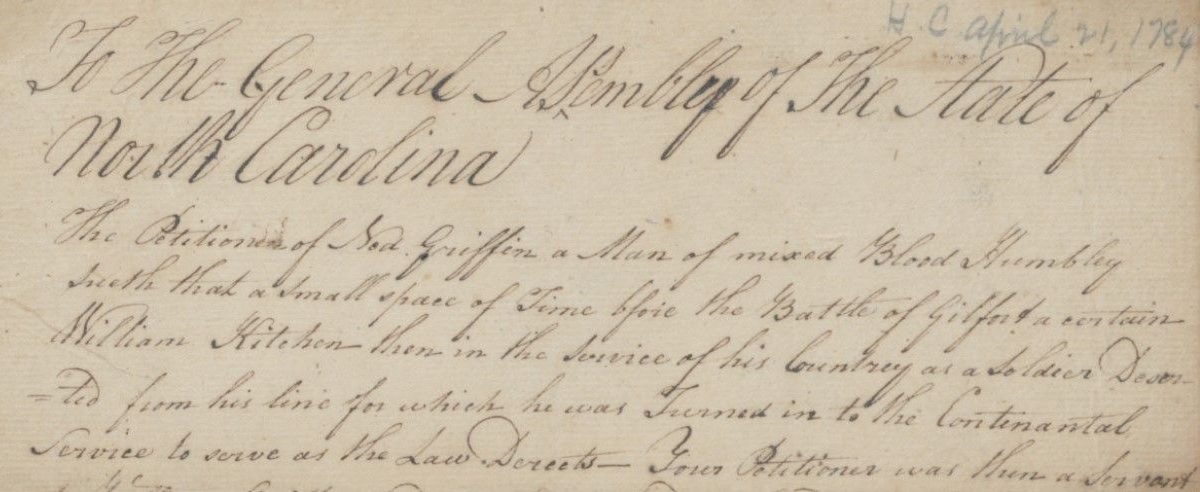 H. C. April 21, 1784
To The General Assembley of The State of
North Carolina
The Petitioner of Ned. Griffin a Man of mixed Blood Humbley
sueth that a small space of Time bfore the Battle of Gilfort a certain
William Kitchen then in the service of his Countrey as a soldier Deser-
=ted from his line for which he was Turned in to the Continantal
Service to serve as the Law Derects— Your Petitioner was then a Servant